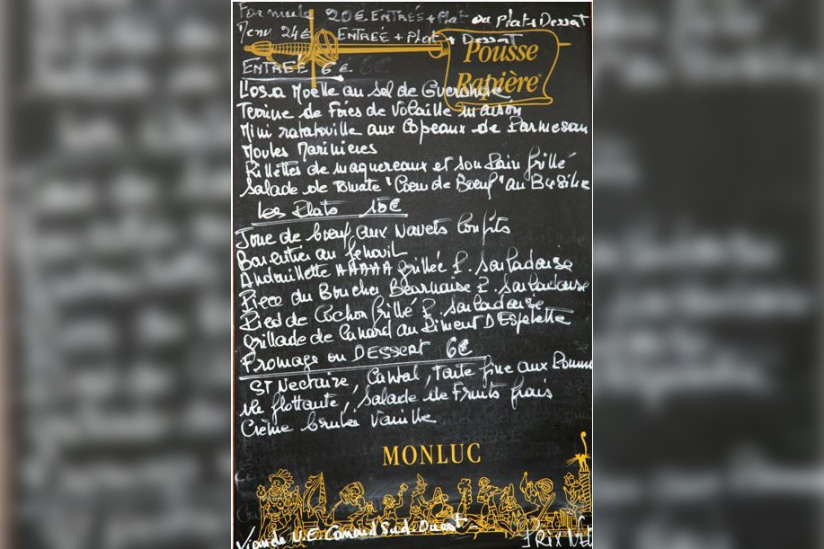 Formule 20€ ENTRÉE + Plat ou Plat + Dessert
Menu 24€ ENTRÉE + Plat + Dessert
Pousse
Rapière
ENTRÉE 6€
L'os a Moelle au sel de Guerande
Terrine de Foies de Volaille maison
Mini ratatouille aux Copeaux de Parmesan
Moules Marinieres
Rillettes de maquereaux et son Pain grillé
Salade de Tomate "Coeur de Boeuf" au Basilic
Les Plats 15€
Joue de boeuf aux Navets Confits
Bar entier au fenouil
Andouillette AAAAA grillée P. Sarladaise
Piece du Boucher Bearnaise P. Sarladaise
Pied de Cochon grillé P. Sarladaise
Grillade de Canard au Piment D'Espelette
Fromage ou DESSERT 6€
St Nectaire, Cantal, Tarte fine aux Pomme
Ile flottante, Salade de Fruits frais
Crème brulée Vanille
MONLUC
Viande U.E. Canard Sud-Ouest PRIX NET